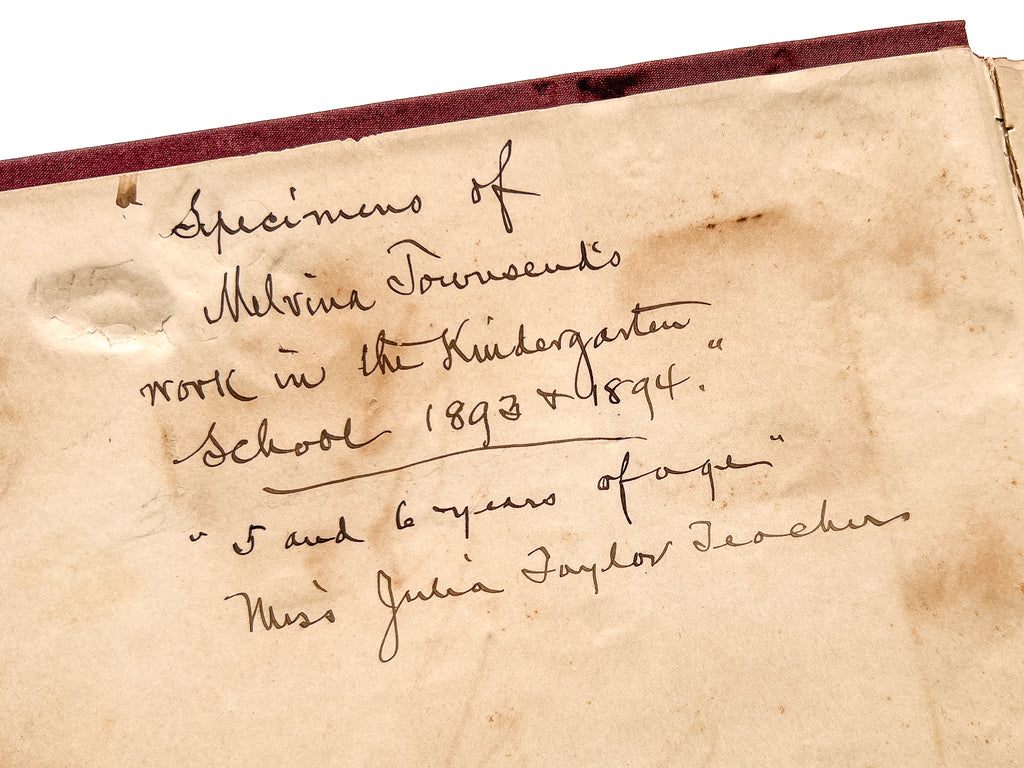 "Specimens of
Melvina Townsend's
work in the Kindergarten
School 1893 & 1894."
"5 and 6 years of age"
Miss Julia Taylor Teacher